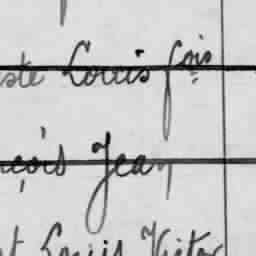 ste Louis fois
nçois Jean
t Louis Victor